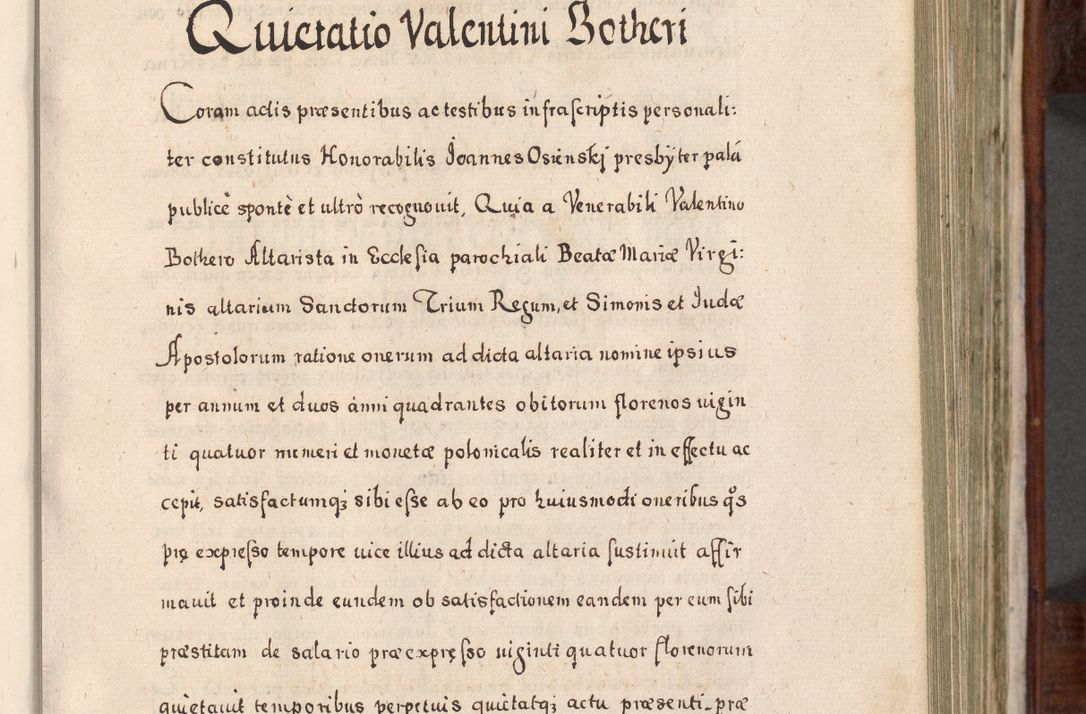 Quietatio Valentini Botheri
Coram actis præsentibus ac testibus infrascriptis personali:
ter constitutus Honorabilis Joannes Osienskj presbyter palā
publicè spontè et ultrò recognouit, Quia a Venerabili Valentino
Bothero Altarista in Ecclesia parochiali Beatæ Mariæ Virgi:
nis altarium Sanctorum Trium Regum, et Simonis et Judæ
Apostolorum ratione onerum ad dicta altaria nomine ipsius
per annum et duos anni quadrantes obitorum florenos uigin
ti quatuor numeri et monetæ polonicalis realiter et in effectu ac
cepit, satisfactumqꝫ sibi esse ab eo pro huiusmodi oneribus q̊s
pro expresso tempore uice illius ad dicta altaria sustinuit affir
mauit et proinde eundem ob satisfactionem eandem per eum sibi
præstitam de salario præexpresso uiginti quatuor florenorum
quietauit temporibus perpetuis quietatqꝫ actu præsenti præ